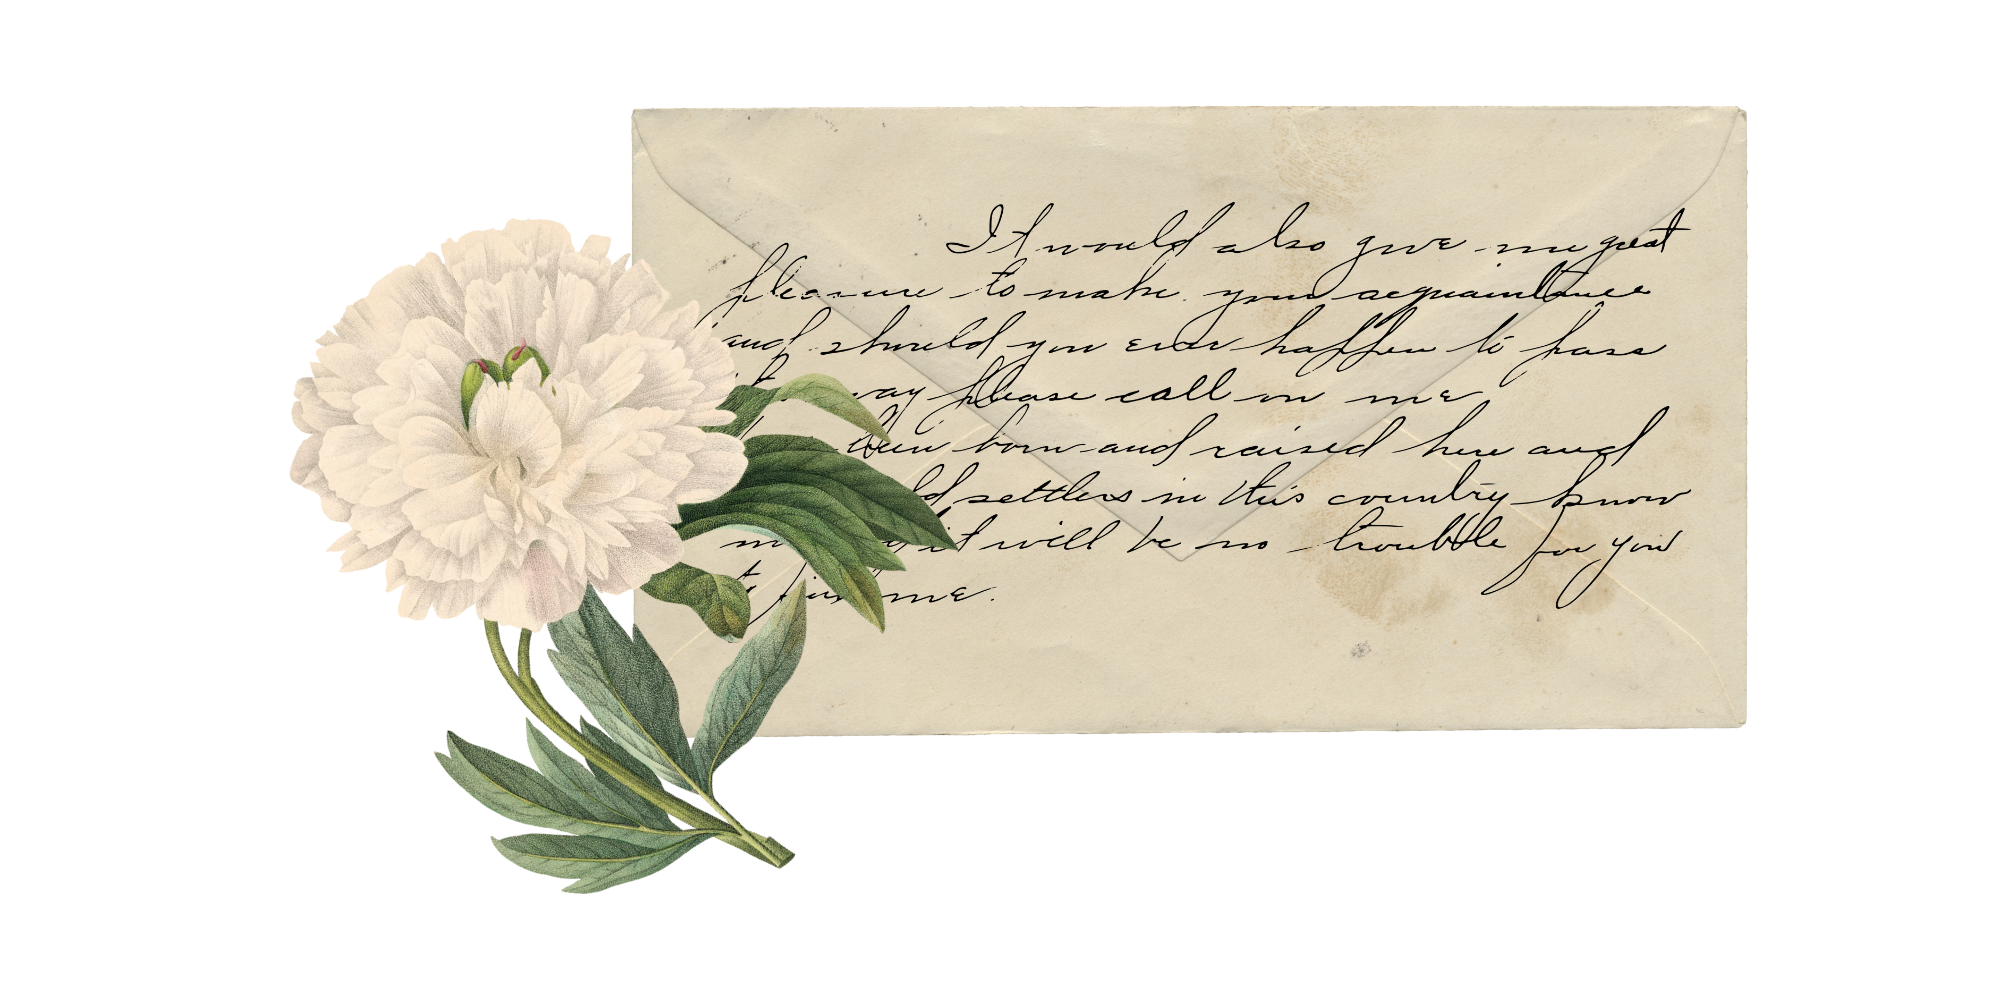 It would also give me great
pleasure to make your acquaintance
and should you ever happen to pass
way please call on me
been born and raised here and
settlers in this country know
it will be no trouble for you
to me.